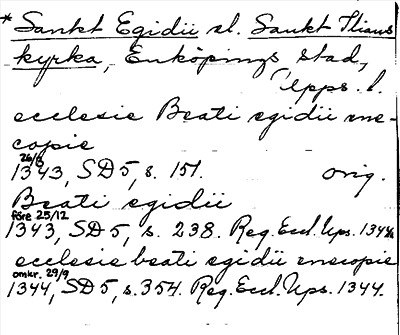 * Sankt Egidii el. Sankt Ilians
kyrka, Enköpings stad,
Upps. l.
ecclesie Beati egidii ene-
copie
26/8
1343, SD 5, s. 151. orig.
Beati egidii
före 25/12
1343, SD 5, s. 238. Reg. Eccl. Ups. 1344.
ecclesie beati egidii enecopie
omkr. 29/9
1344, SD 5, s. 354. Reg. Eccl. Ups. 1344.